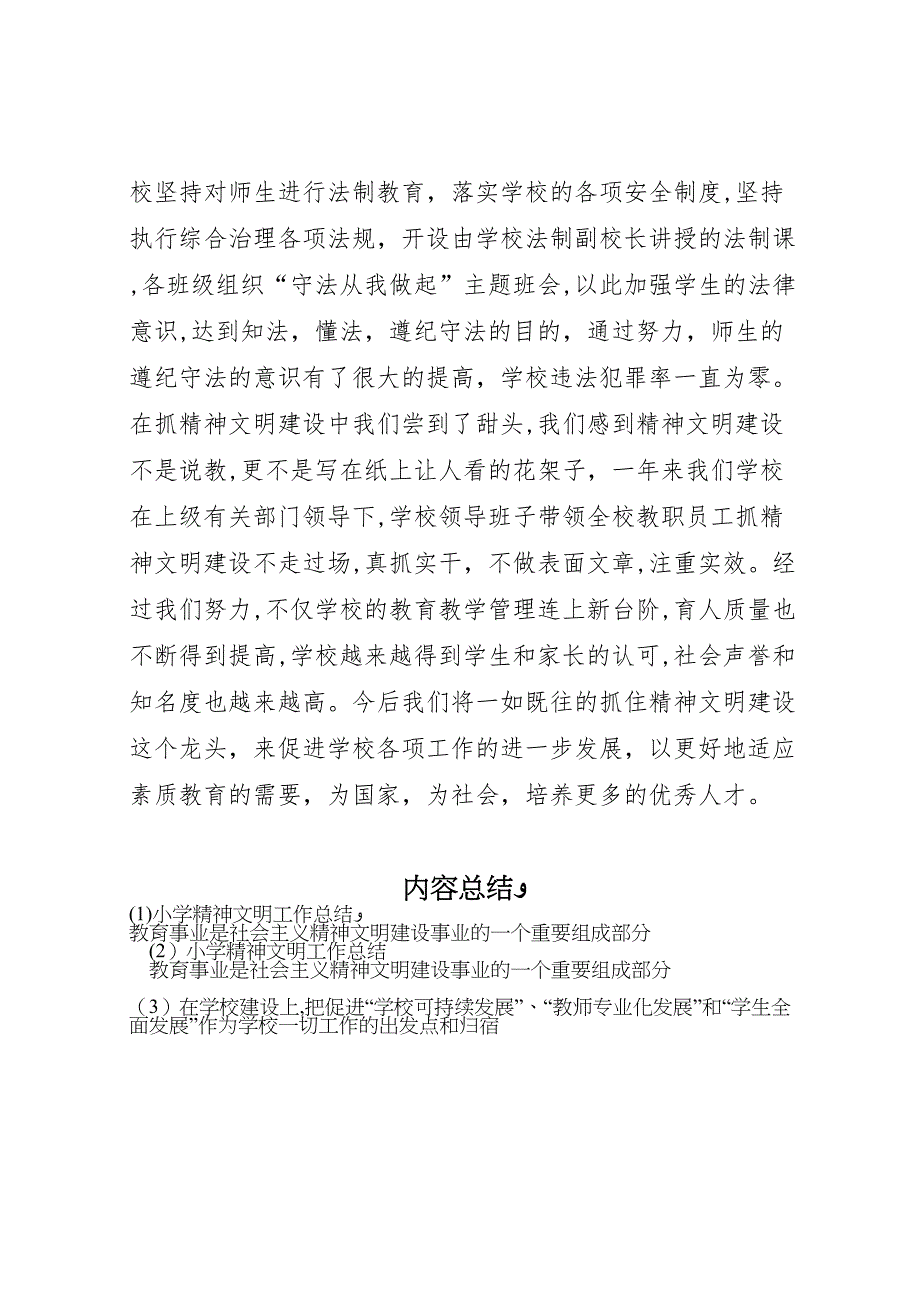 校坚持对师生进行法制教育，落实学校的各项安全制度,坚持
执行综合治理各项法规，开设由学校法制副校长讲授的法制课
,各班级组织“守法从我做起”主题班会,以此加强学生的法律
意识,达到知法，懂法，遵纪守法的目的，通过努力，师生的
遵纪守法的意识有了很大的提高，学校违法犯罪率一直为零。
在抓精神文明建设中我们尝到了甜头,我们感到精神文明建设
不是说教,更不是写在纸上让人看的花架子，一年来我们学校
在上级有关部门领导下,学校领导班子带领全校教职员工抓精
神文明建设不走过场,真抓实干，不做表面文章,注重实效。经
过我们努力,不仅学校的教育教学管理连上新台阶,育人质量也
不断得到提高,学校越来越得到学生和家长的认可,社会声誉和
知名度也越来越高。今后我们将一如既往的抓住精神文明建设
这个龙头，来促进学校各项工作的进一步发展，以更好地适应
素质教育的需要，为国家，为社会，培养更多的优秀人才。
内容总结ﻭ
(1)小学精神文明工作总结ﻭ
教育事业是社会主义精神文明建设事业的一个重要组成部分
(2）小学精神文明工作总结
教育事业是社会主义精神文明建设事业的一个重要组成部分
（3）在学校建设上,把促进“学校可持续发展”、“教师专业化发展”和“学生全
面发展”作为学校一切工作的出发点和归宿